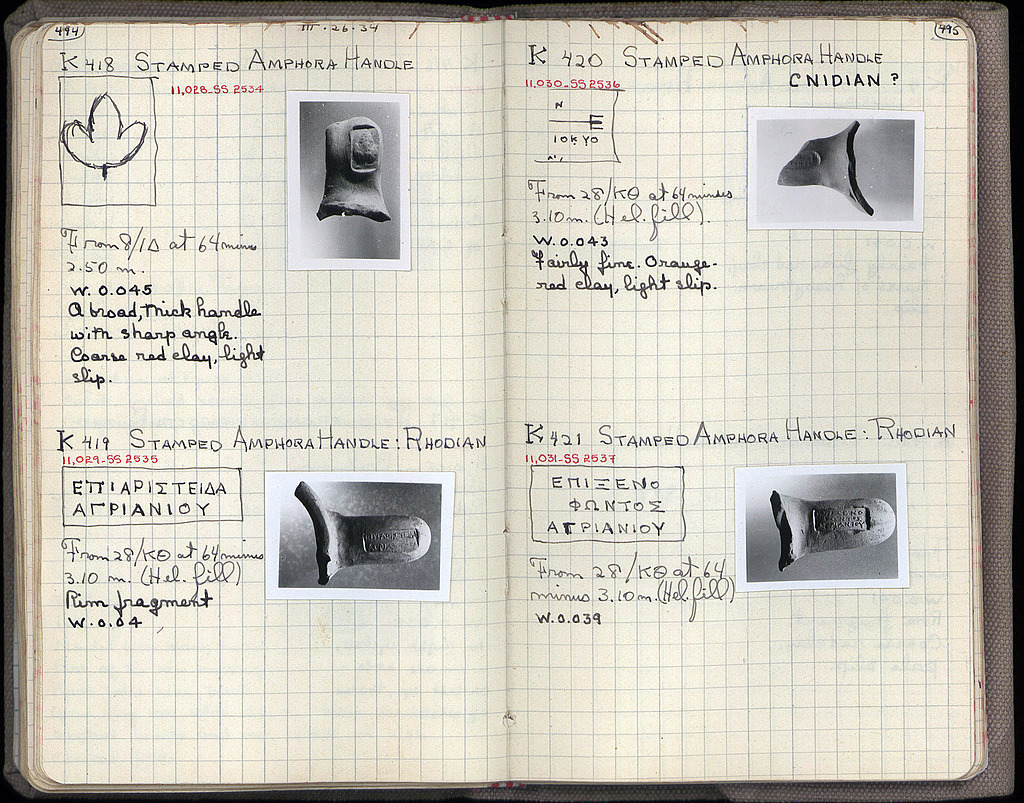 494
III-26-34
K 418 STAMPED AMPHORA HANDLE
11,028-SS 2534
From 8/ΙΔ at 64 minus
2.50 m.
W. 0.045
A broad, thick handle
with sharp angle.
Coarse red clay, light
slip.
K 419 STAMPED AMPHORA HANDLE: RHODIAN
11,029-SS 2535
ΕΠΙΑΡΙΣΤΕΙΔΑ
ΑΓΡΙΑΝΙΟΥ
From 28/ΚΘ at 64 minus
3.10 m. (Hel. fill)
Rim fragment
W. 0.04
495
K 420 STAMPED AMPHORA HANDLE
CNIDIAN?
11,030-SS 2536
N
ΙΟΚΥΟ
From 28/ΚΘ at 64 minus
3.10 m. (Hel. fill).
W. 0.043
Fairly fine. Orange-
red clay, light slip.
K 421 STAMPED AMPHORA HANDLE: RHODIAN
11,031-SS 2537
ΕΠΙΞΕΝΟ
ΦΩΝΤΟΣ
ΑΓΡΙΑΝΙΟΥ
From 28/ΚΘ at 64
minus 3.10 m. (Hel. fill)
W. 0.039